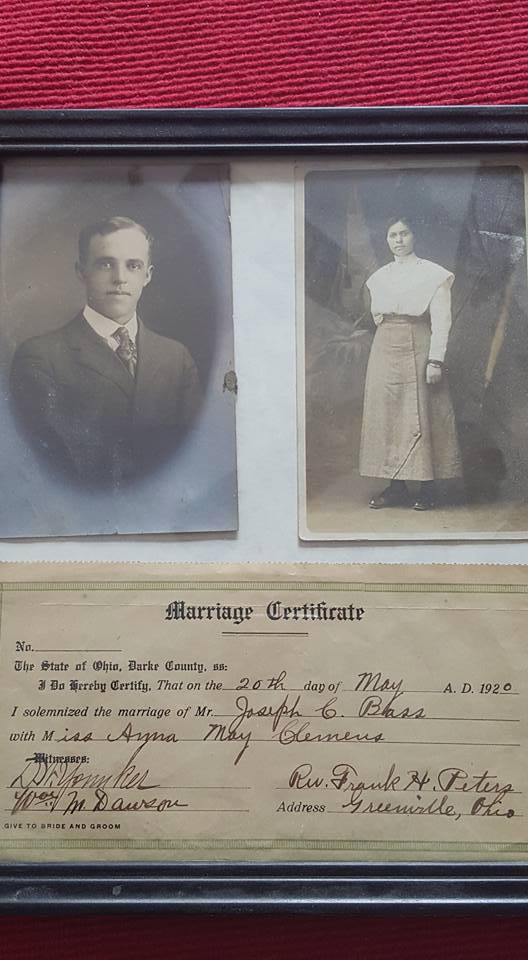 Marriage Certificate
No.
The State of Ohio, Darke County, ss:
I Do Hereby Certify, That on the 20th day of May A. D. 1920
I solemnized the marriage of Mr. Joseph C. Bass
with Miss Anna May Clemens
Witnesses:
Rev. Frank H. Peters
M. Dawson Address Greenville, Ohio
GIVE TO BRIDE AND GROOM